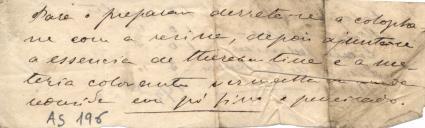 Para o preparar derrete-se a colopho-
ne com a resina, depois ajunta-se
a essencia de therebentine e a ma-
teria colorante vermelha
reduzida em pó fino e peneirado.
AS 196